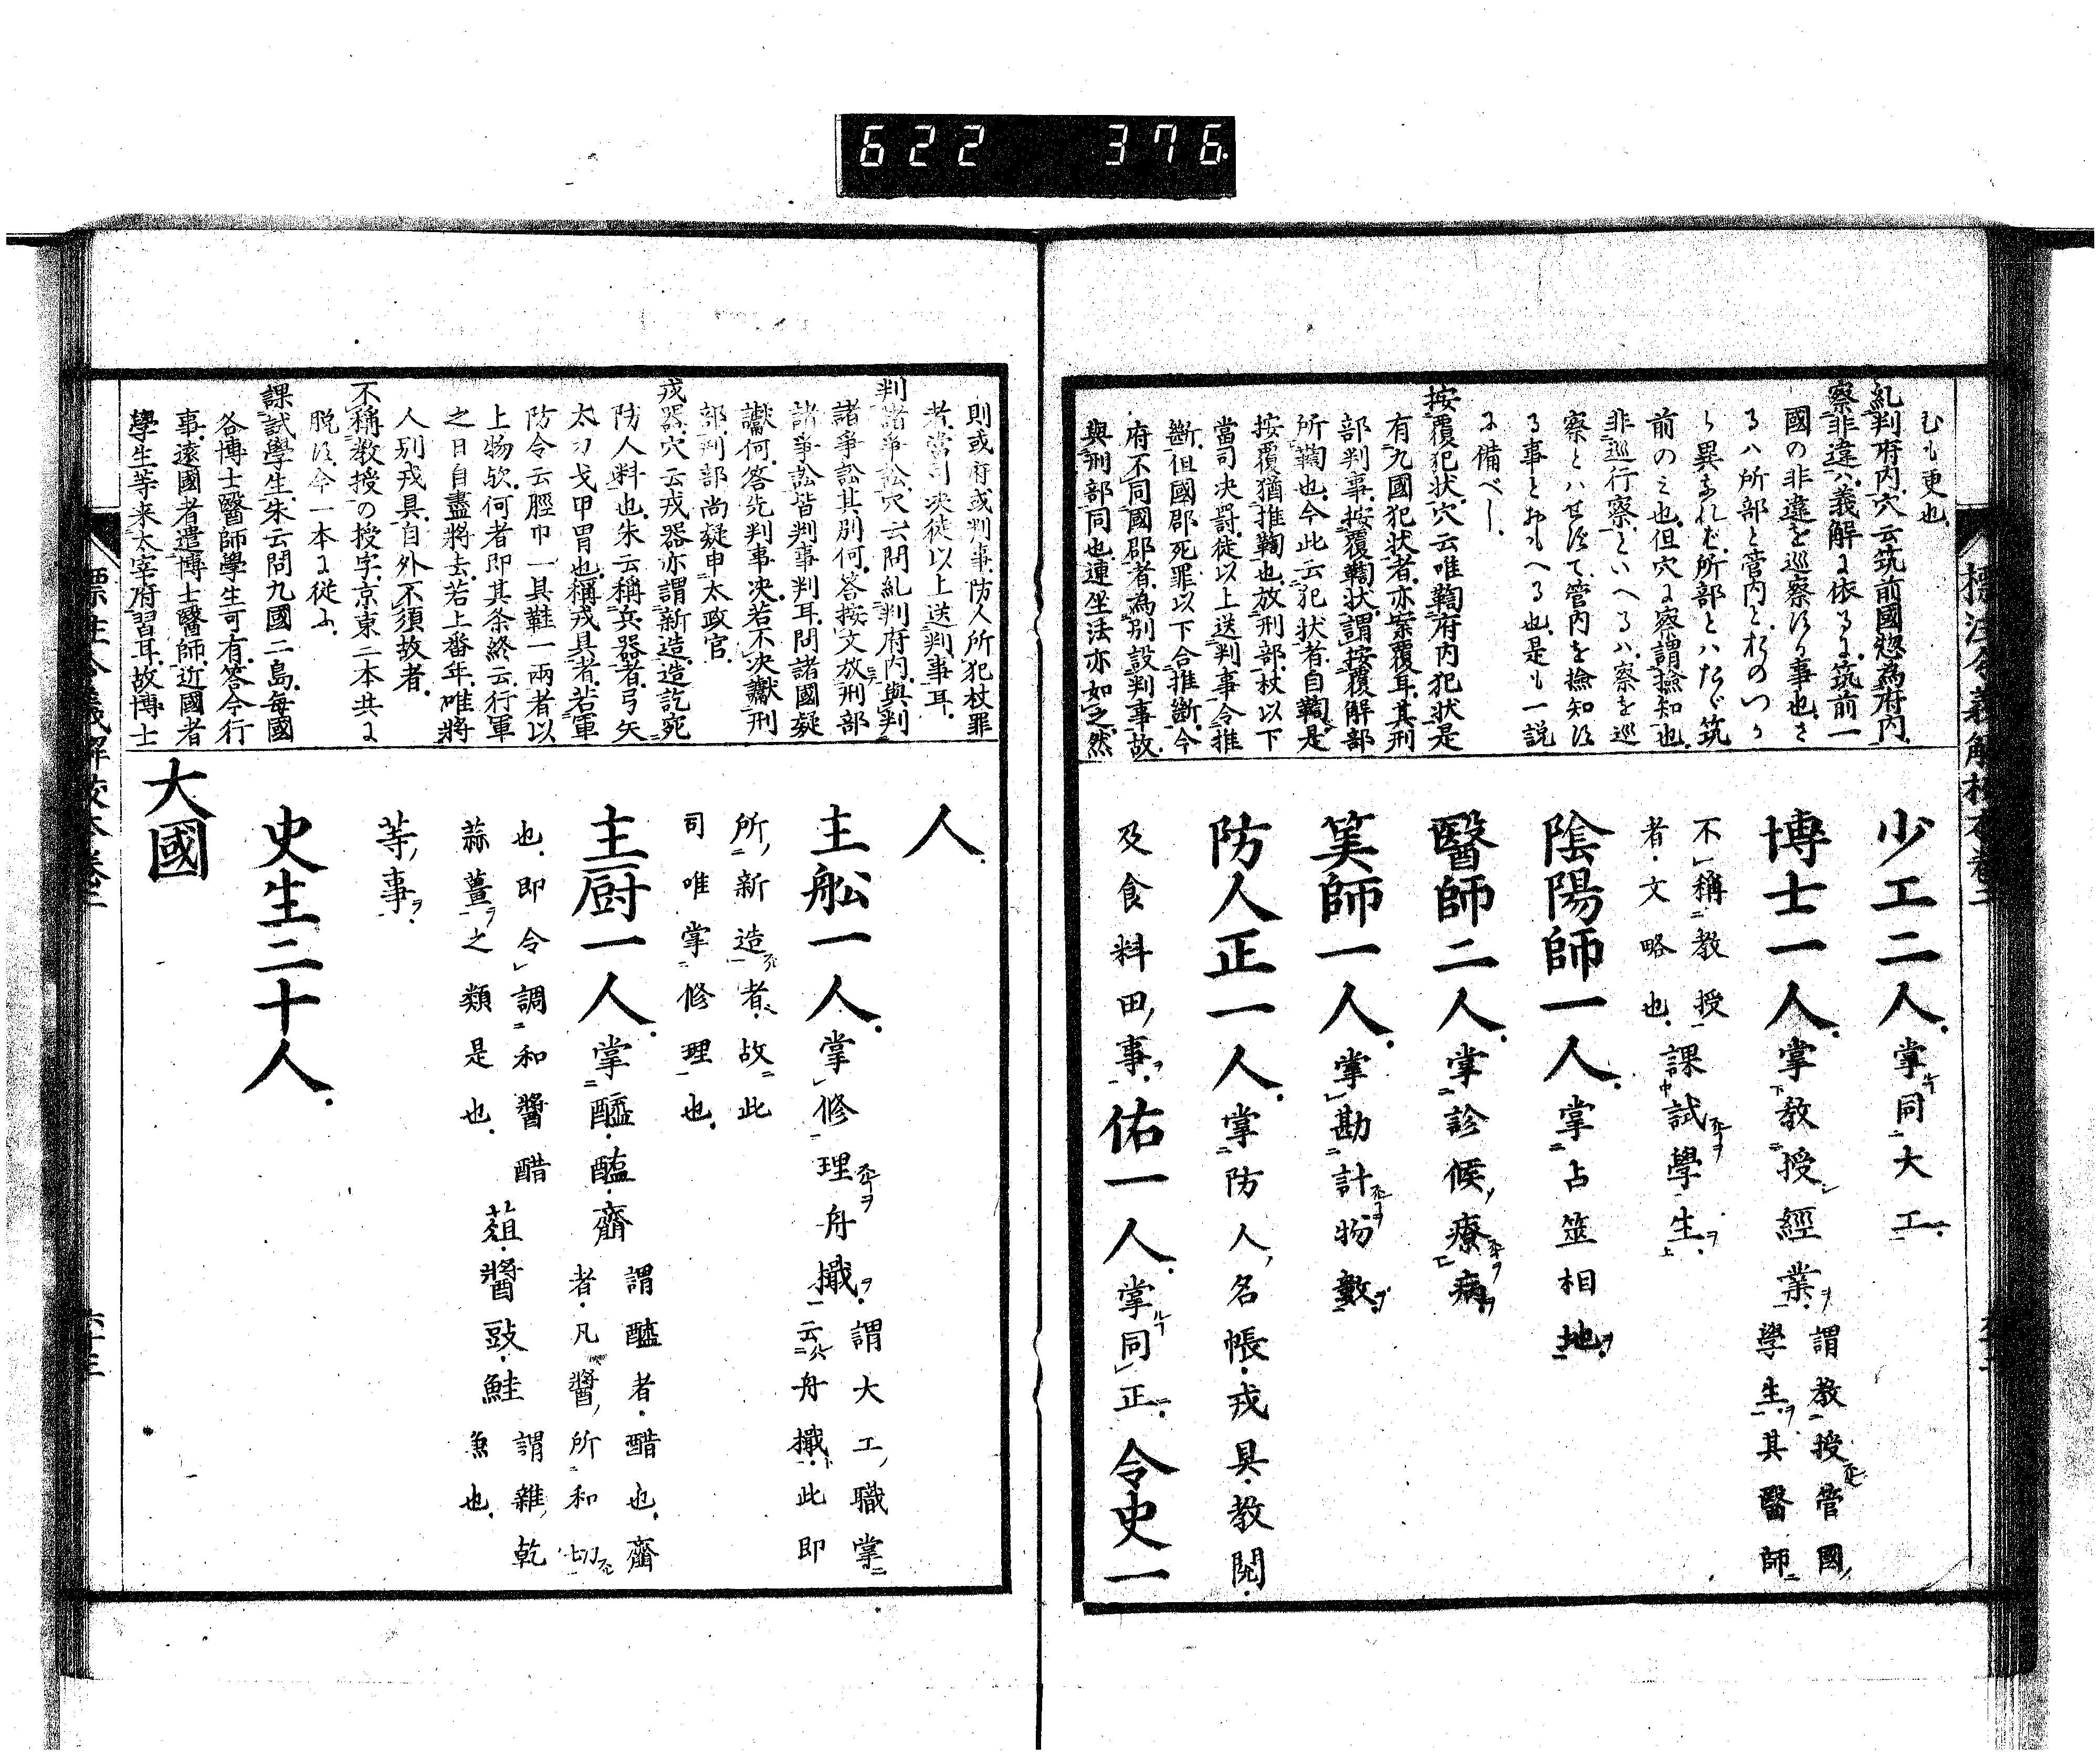 622 376
むも更也
糺判府内穴云筑前國惣為府内
察非違ハ義解に依るに筑前一
國の非違を巡察する事也さ
るハ所部と管内と
前のミ也但穴に察謂撿知也
非巡行察といへるハ察を巡
察とハせすて管内を撿知す
る事とおもへる也是も一説
に備べし
按覆犯状穴云唯鞫府内犯状是
有九國犯状者亦案覆耳其刑
部判事按覆鞫状謂按覆解部
所鞫也今此云犯状者自鞫是
按覆猶推鞫也放刑部杖以下
當司決罰徒以上送判事令推
斷但國郡死罪以下合推斷今
府不同國郡者為別設判事故
與刑部同也連坐法亦如之然
少工二人掌同大工
博士一人掌教授經業謂教授管國
學生其醫師
不稱教授
者文略也課試學生
陰陽師一人掌占筮相地
醫師二人掌診候療病
筭師一人掌勘計物數
防人正一人掌防人名帳戎具教閲
及食料田事佑一人掌同正令史一
則或府或判事防人所犯杖罪
者當司決徒以上送判事耳
判諸爭訟穴云問糺判府内與判
諸爭訟其別何答按文放刑部
諸爭訟皆判事判耳問諸國疑
讞何答先判事決若不決讞刑
部刑部尚疑申太政官
戎器穴云戎器亦謂新造造訖宛
防人料也朱云稱兵器者弓矢
太刀戈甲冑也稱戎具者若軍
防令云脛巾一具鞋一兩者以
上物欤何者即其条終云行軍
之日自盡將去若上番年唯將
人別戎具自外不須故者
不稱教授の授字京東二本共に
脱す今一本に從ふ
課試學生朱云問九國二島每國
各博士醫師學生可有答令行
事遠國者遣博士醫師近國者
學生等来太宰府習耳故博士
人
主舩一人掌修理舟檝謂大工職掌
云舟檝此即
所新造者故此
司唯掌修理也
主厨一人掌醯醢齏謂醯者醋也齏
者凡醬所和切
也即令調和醬醋
蒜薑之類是也葅醬豉鮭謂雜乾
魚也
等事
史生二十人
大國